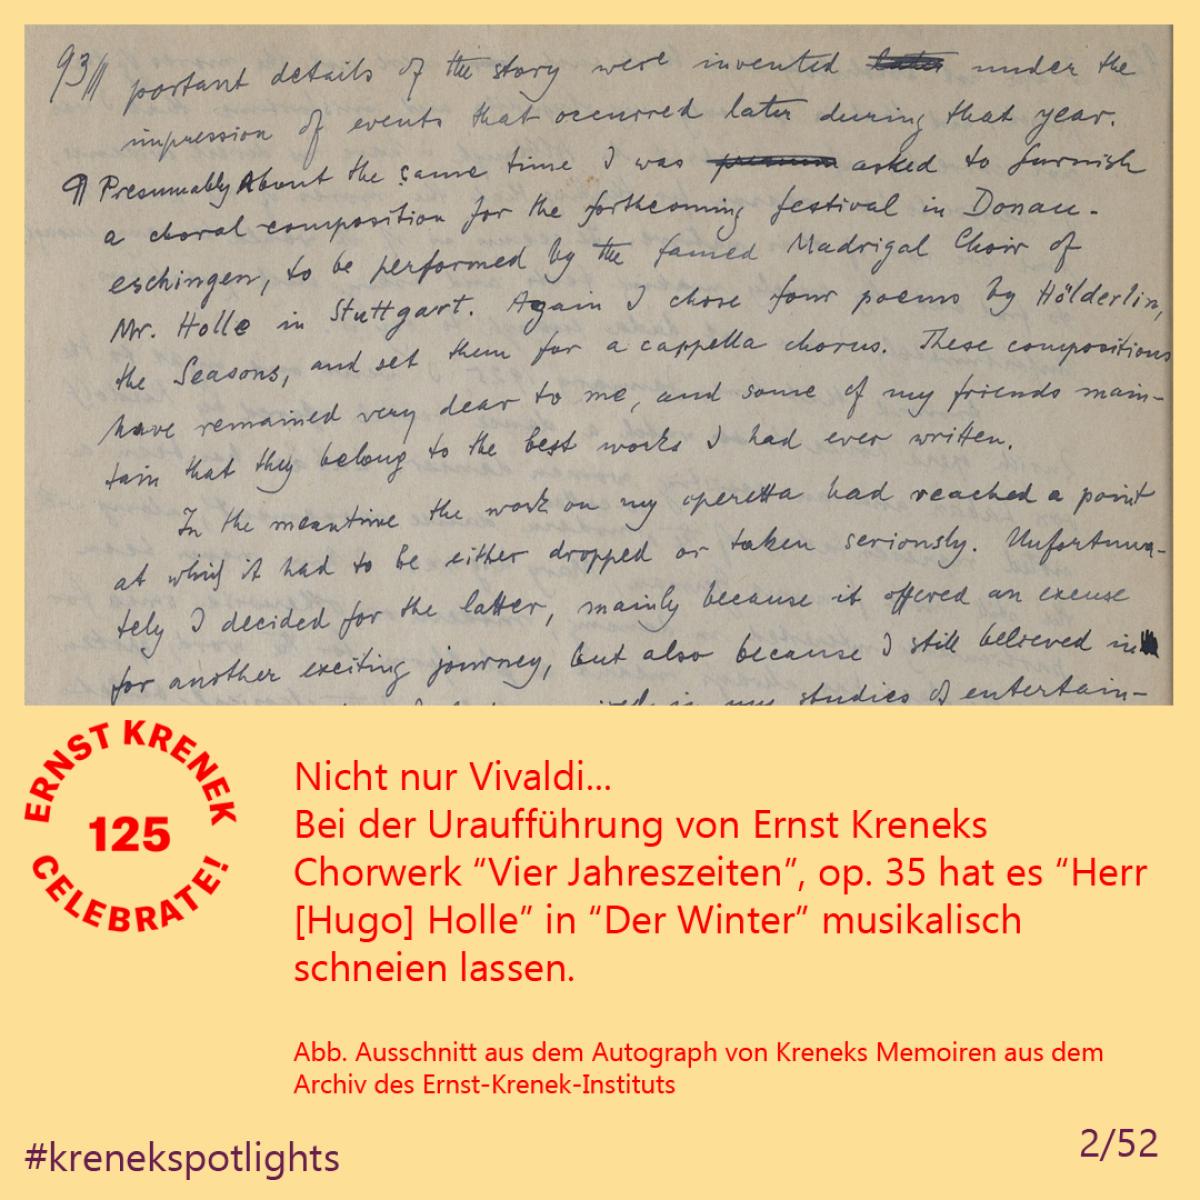 93
portant details of the story were invented later under the
impression of events that occurred later during that year.
¶ Presumably About the same time I was asked to furnish
a choral composition for the forthcoming festival in Donau-
eschingen, to be performed by the famed Madrigal Choir of
Mr. Holle in Stuttgart. Again I chose four poems by Hölderlin,
the Seasons, and set them for a cappella chorus. These compositions
have remained very dear to me, and some of my friends main-
tain that they belong to the best works I had ever written.
In the meantime the work on my operetta had reached a point
at which it had to be either dropped or taken seriously. Unfortuna-
tely I decided for the latter, mainly because it offered an excuse
for another exciting journey, but also because I still believed in
my studies of entertain-
ERNST KRENEK
125
CELEBRATE!
Nicht nur Vivaldi...
Bei der Uraufführung von Ernst Kreneks
Chorwerk “Vier Jahreszeiten”, op. 35 hat es “Herr
[Hugo] Holle” in “Der Winter” musikalisch
schneien lassen.
Abb. Ausschnitt aus dem Autograph von Kreneks Memoiren aus dem
Archiv des Ernst-Krenek-Instituts
#krenekspotlights
2/52